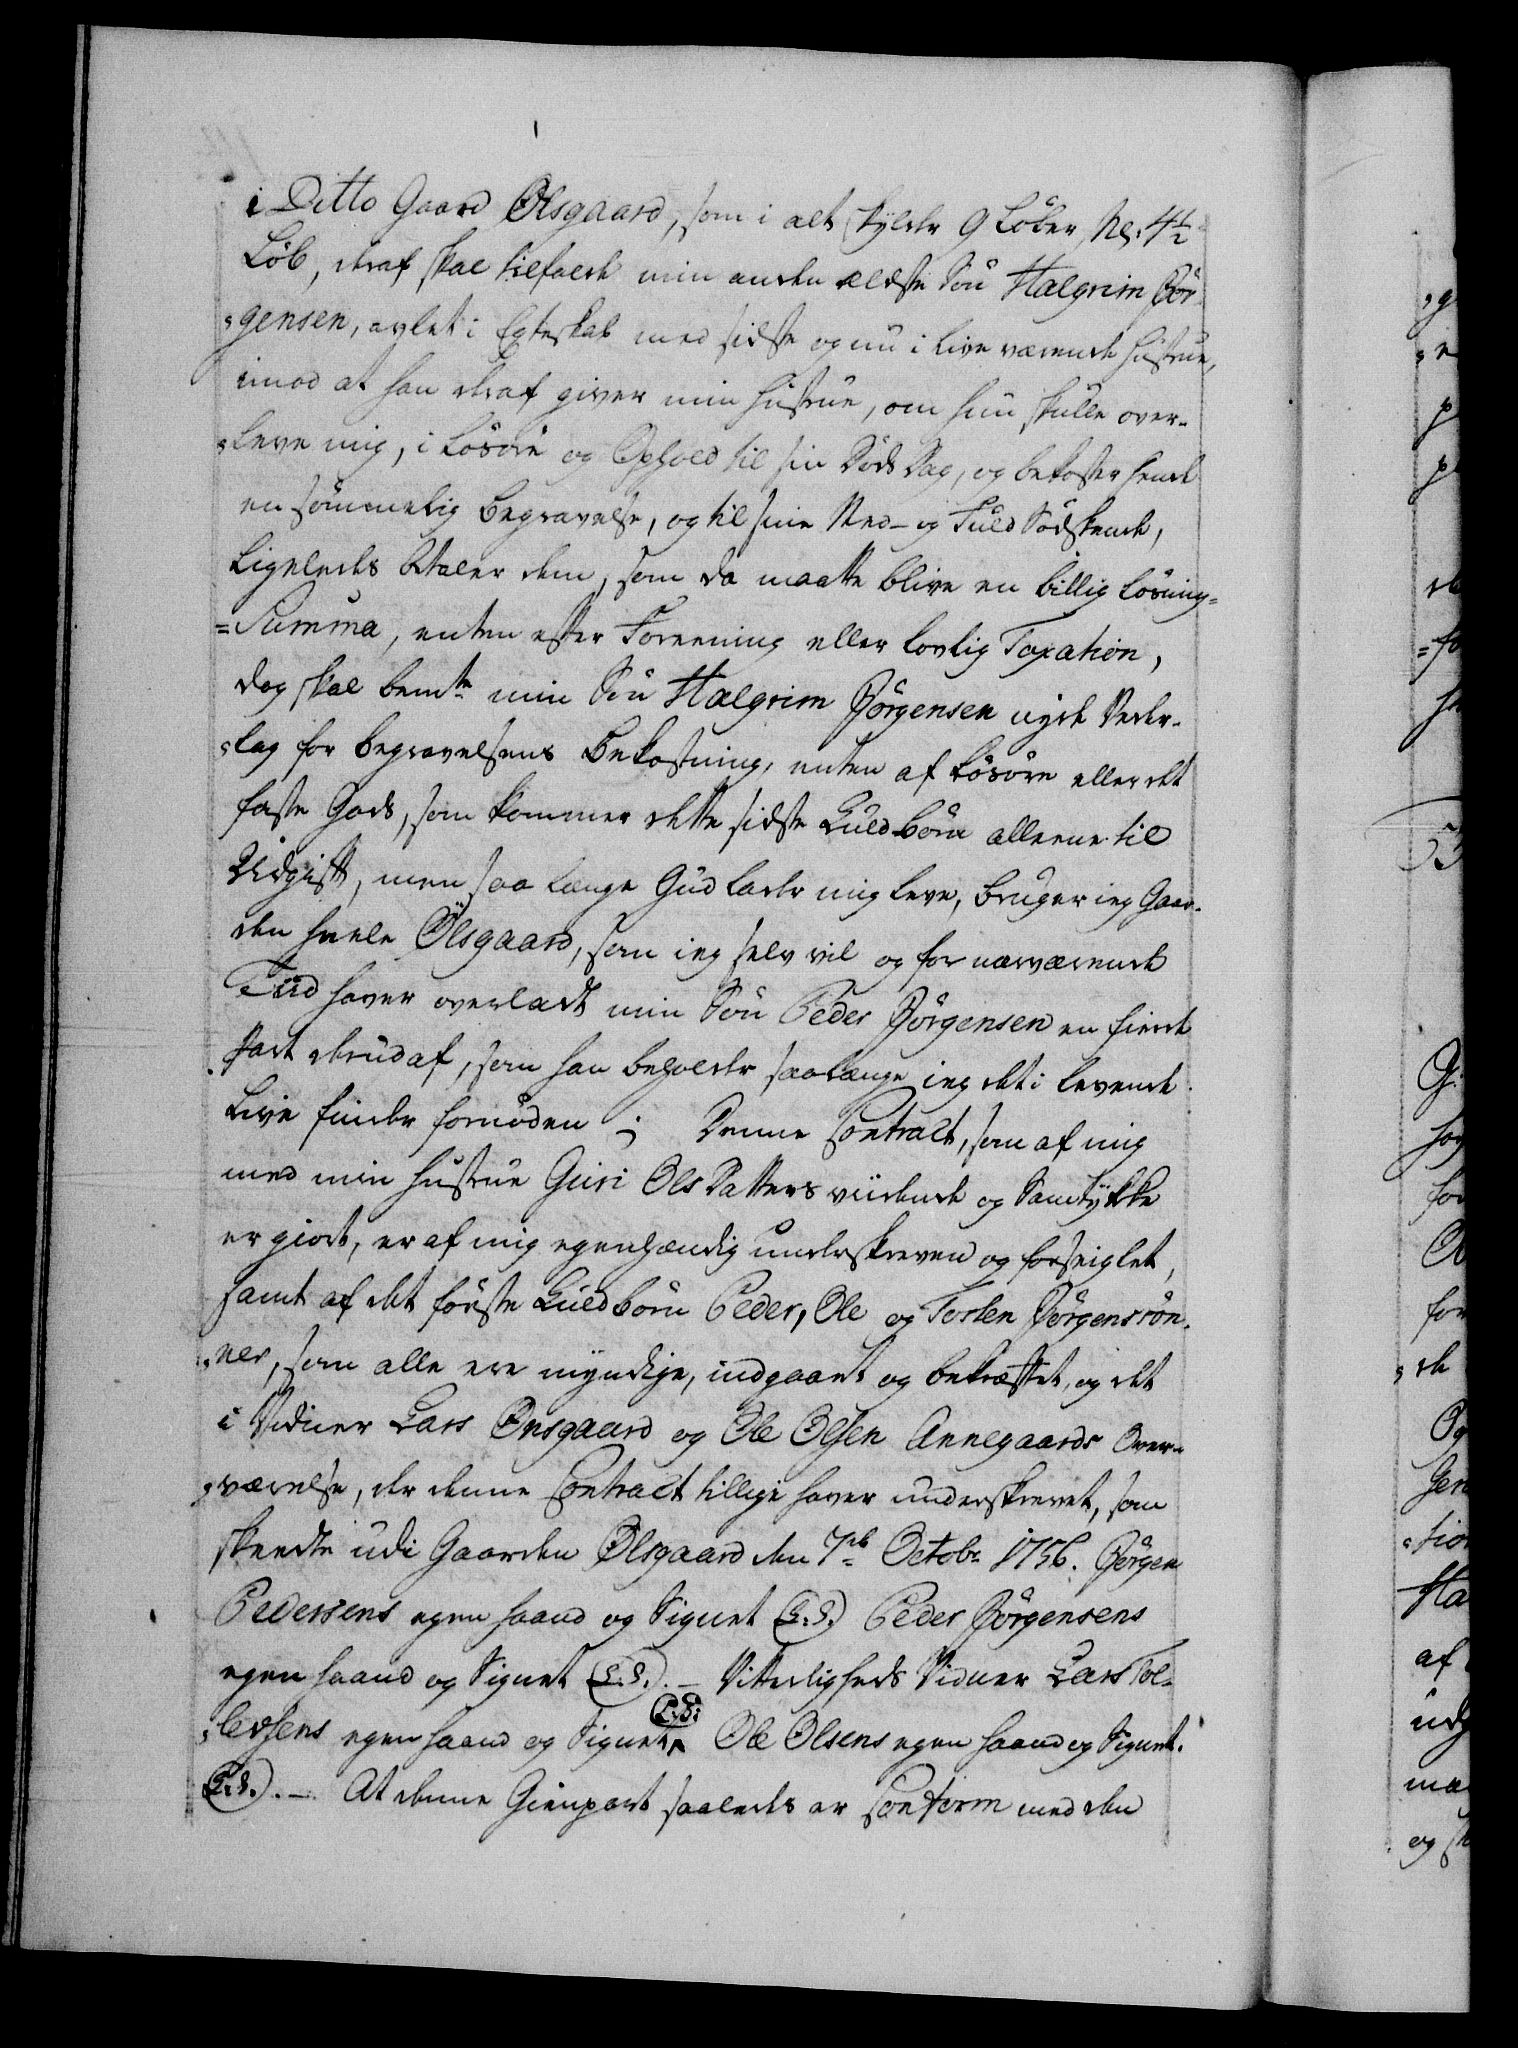 i Ditto Gaard Ølsgaard, som i alt skylder 9 Løber, Nl: 4 1/2
Løb, deraf skal tilfalde min anden ældste Søn Halgrim Jør¬
„gensen, aylet i Egteskab med sidste og nu i Live værende Hustrue,
imod at han deraf giver min Hustrue, om hun skulle over¬
„leve mig, i Løsøre og Ophold til sin Døds Dag, og bekoster hende
en sømmelig Begravelse, og til sine Med- og Fuld Sødskende,
ligeledes betaler dem, som da maatte blive en billig Løsning¬
=Summa, enten efter Foreening eller lovlig Taxation,
dog skal bemte min Søn Halgrim Jørgensen nyde Veder¬
„lag for Begravelsens Bekostning, enten af Løsøre eller det
faste Gods, som kommer dette sidste Kuld Børn alleene til
Udgift, men saa længe Gud lader mig leve, bruger ieg Gaar¬
den heele Ølsgaard, som ieg selv vil og for nærværende
Tiid haver overladt min Søn Peder Jørgensen en fierde
Part derudaf, som han beholder saalænge ieg det i levende
Live finder fornøden; Denne Contract, som af mig
med min Hustrue Guri Ols Datters viidende og Samtykke
er giort, er af mig egenhændig underskreven og forseiglet,
samt af det første Kuld Børn Peder, Ole og Torsten Jørgensøn¬
„ner, som alle ere myndige, indgaaet og bekræftet, og det
i Vidner Lars Ønsgaard og Ole Olsen Annegaards Over¬
„værelse, der denne Contract tillige haver underskrevet, som
skeedte udi Gaarden Ølsgaard den 7de Octobr 1756. Jørgen
Pedersens egen Haand og Signet (L.S.) Peder Jørgensens
egen Haand og Signet (L.S.). - Vitterligheds Vidner Lars Tol¬
„levsens egen Haand og Signet (L.S.) Ole Olsens egen Haand og Signet.
(L.S.). - At denne Gienpart saaledes er Conform med den